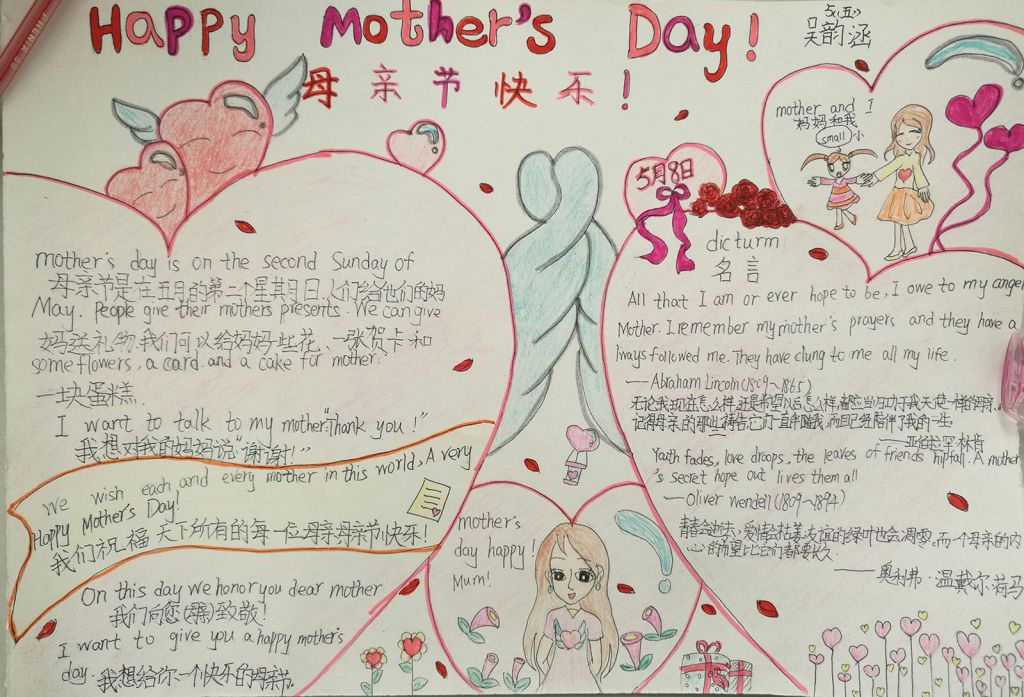 Happy Mother's Day!
母亲节快乐!
5.(五.)
吴韵涵
mother and I
妈妈和我
(small)小
5月8日
mother's day is on the second Sunday of
母亲节是在五月的第二个星其月日,人们给他们的妈
May. People give their mothers presents. We can give
妈送礼物.我们可以给妈妈一些花、一张贺卡和
some flowers, a card. and a cake for mother.
一块蛋糕.
I want to talk to my mother,"Thank you!"
我想对我的妈妈说:"谢谢!"
We wish each and every mother in this world, A very
Happy Mother's Day!
我们祝福天下所有的每一位母亲母亲节快乐!
On this day we honor you dear mother
我们向您(母亲)致敬!
I want to give you a happy mother's
day. 我想给你一个快乐的母亲节.
mother's
day happy!
Mum!
dicturm
名言
All that I am or ever hope to be, I owe to my angel
Mother. I remember my mother's prayers and they have a
lways followed me. They have clung to me all my life.
——Abraham Lincoln(1809~1865)
无论我现在怎么样,还是希望以后怎么样,都应当归功于我天使一样的母亲.我
记得母亲的那些祷告,它们一直伴随我,而且已经陪伴了我的一生.
——亚伯拉罕.林肯
Youth fades, love droops, the leaves of friends hipfall. A mother
's secret hope out lives them all
——Oliver wendell(1809-1894)
青春会逝去;爱情会枯萎;友谊的绿叶也会凋零。而一个母亲的内
心的希望比它们都要长久.
——奥利弗·温戴尔·荷马